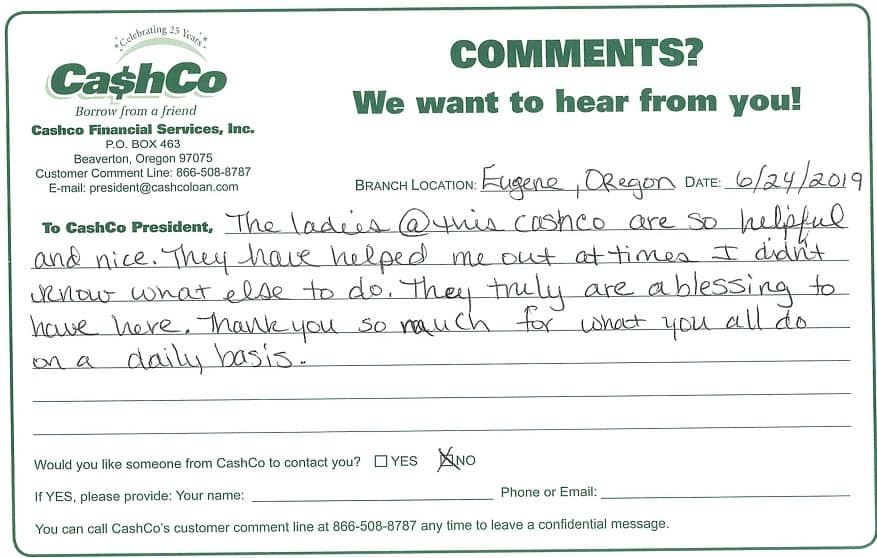 Celebrating 25 Years
Ca$hCo
Borrow from a friend
Cashco Financial Services, Inc.
P.O. BOX 463
Beaverton, Oregon 97075
Customer Comment Line: 866-508-8787
E-mail: president@cashcoloan.com
COMMENTS?
We want to hear from you!
BRANCH LOCATION: Eugene, Oregon DATE: 6/24/2019
To CashCo President, The ladies @ this cashco are so helpful
and nice. They have helped me out at times I didn't
know what else to do. They truly are a blessing to
have here. Thank you so much for what you all do
on a daily basis.
Would you like someone from CashCo to contact you? YES NO
If YES, please provide: Your name: Phone or Email:
You can call CashCo's customer comment line at 866-508-8787 any time to leave a confidential message.